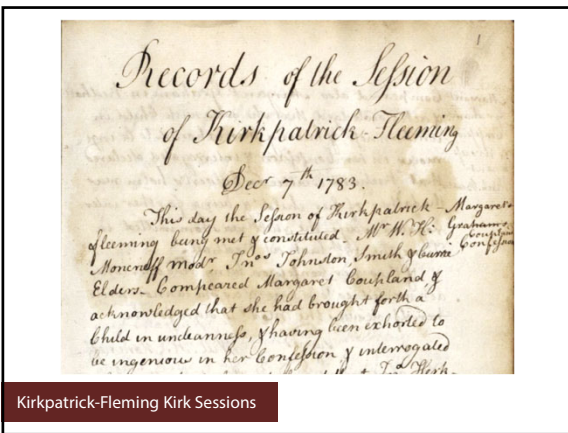 1
Records of the Session
of Kirkpatrick-Fleeming
Decr 7th 1783.
This day the Session of Kirkpatrick-
fleeming being met & constituted. Mr W. H:
Moncrieff modr Jnos Johnston, Smith & Currie
Elders. Compeared Margaret Coupland &
acknowledged that she had brought forth a
Child in uncleanness, & having been exhorted to
be ingenious in her Confession & interrogated
Margaret
Graham
Coupland
Confession
Kirkpatrick-Fleming Kirk Sessions